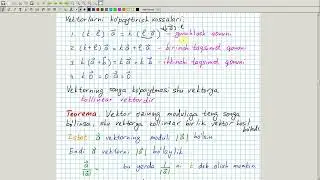 Vektorlarni ko'paytirish xossalari:
1. (k·ℓ) a⃗ = k (ℓ·a⃗) – guruhlash qonuni
2. (k+ℓ) a⃗ = k a⃗ + ℓ a⃗ – birinchi taqsimot qonuni
3. k (a⃗+b⃗) = k a⃗ + k b⃗ – ikkinchi taqsimot qonuni
4. k 0⃗ = 0⃗
Vektorning songa ko'paytmasi shu vektorga
kollinear vektordir
Teorema. Vektor o'zining moduliga teng songa
bo'linsa, shu vektorga kollinear birlik vektor hosil bo'ladi
Isbot a⃗ vektorning moduli |a⃗| bo'lsin
Endi a⃗ vektorni |a⃗| bo'laylik
a⃗/|a⃗| = bu yerda 1/|a⃗| ni = deb olish mumkin